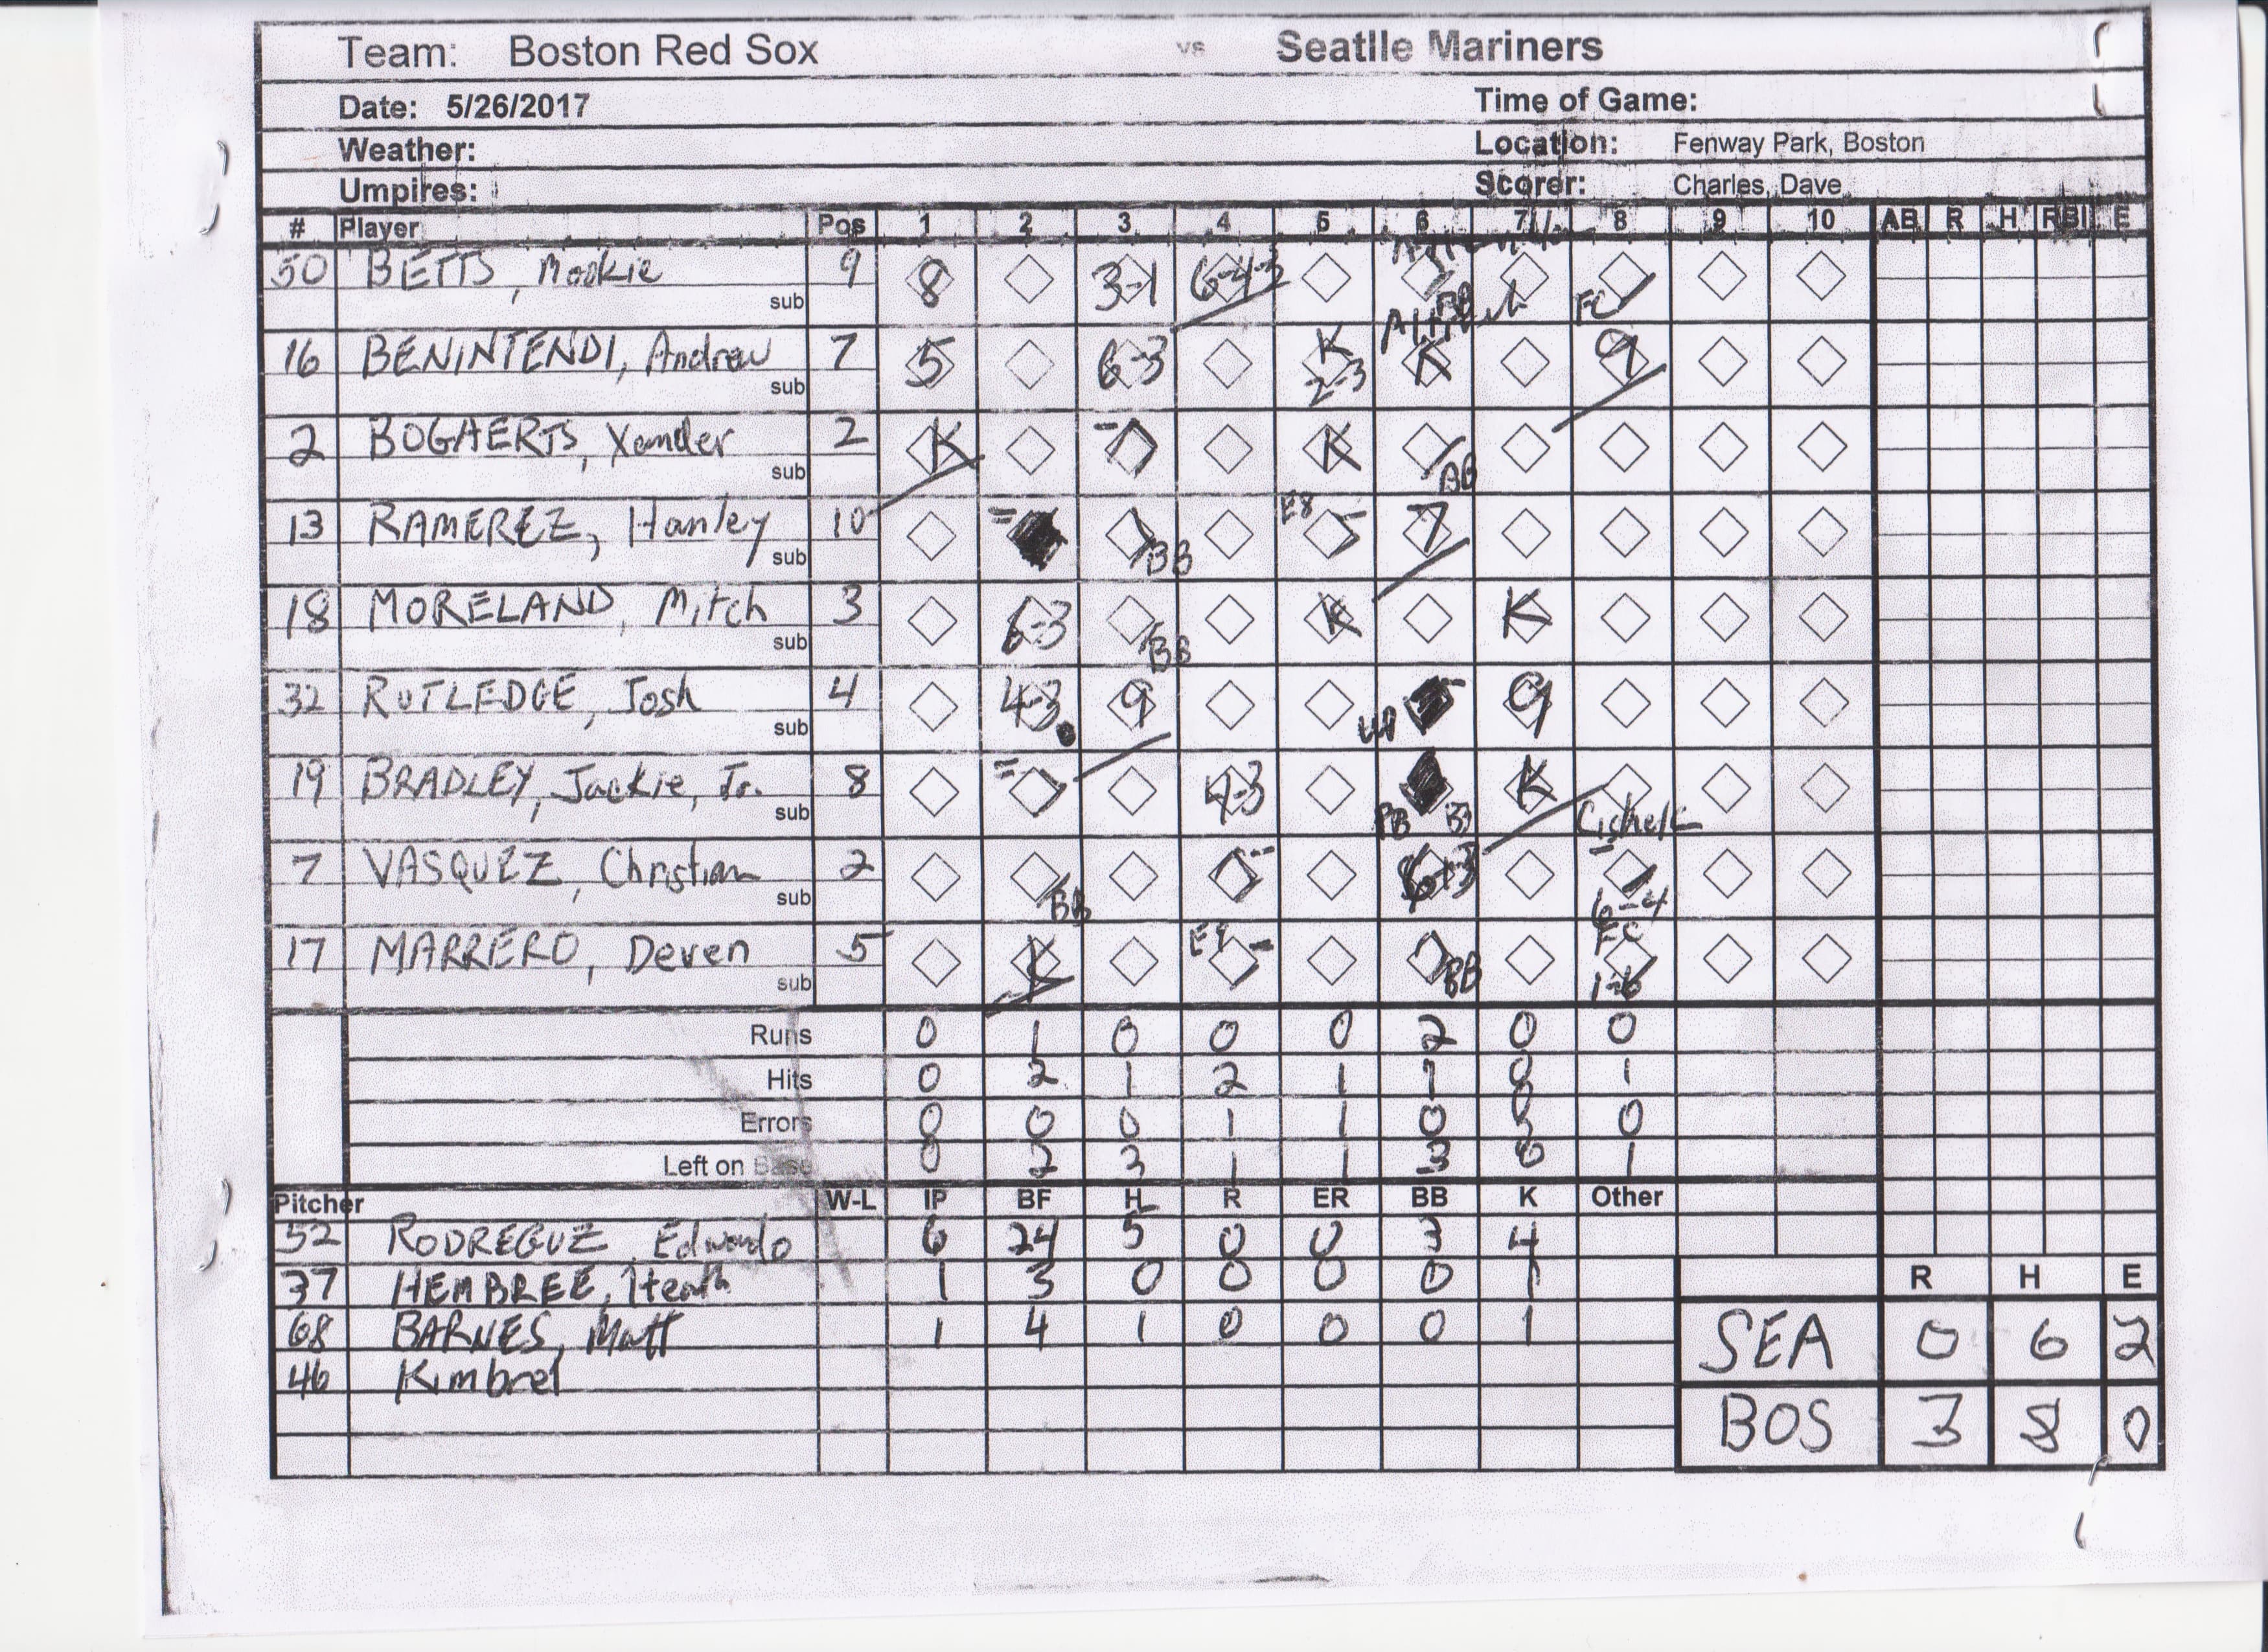 Team: Boston Red Sox vs Seatlle Mariners
Date: 5/26/2017 Time of Game:
Weather: Location: Fenway Park, Boston
Umpires: Scorer: Charles, Dave
# Player Pos 1 2 3 4 5 6 7 8 9 10 AB R H RBI E
50 BETTS, Mookie 9 8 3-1 6-4-3 BB FC
sub
16 BENINTENDI, Andrew 7 5 6-3 K 2-3 K 9
sub
2 BOGAERTS, Xander 2 K K BB
sub
13 RAMEREZ, Hanley 10 BB E8 7
sub
18 MORELAND, Mitch 3 6-3 BB K K
sub
32 RUTLEDGE, Josh 4 4-3 9 9
sub
19 BRADLEY, Jackie, Jr. 8 4-3 PB BB K
sub Cishek
7 VASQUEZ, Christian 2 BB 6-3 6-4
sub
17 MARRERO, Deven 5 K BB FC 1-6
sub
Runs 0 1 0 0 0 2 0 0
Hits 0 2 1 2 1 1 0 1
Errors 0 0 0 1 1 0 0 0
Left on Base 0 2 3 1 1 3 0 1
Pitcher W-L IP BF H R ER BB K Other
52 RODREGUZ, Edwardo 6 24 5 0 0 3 4
37 HEMBREE, Heath 1 3 0 0 0 0 1
68 BARNES, Matt 1 4 1 0 0 0 1
46 Kimbrel
R H E
SEA 0 6 2
BOS 3 8 0